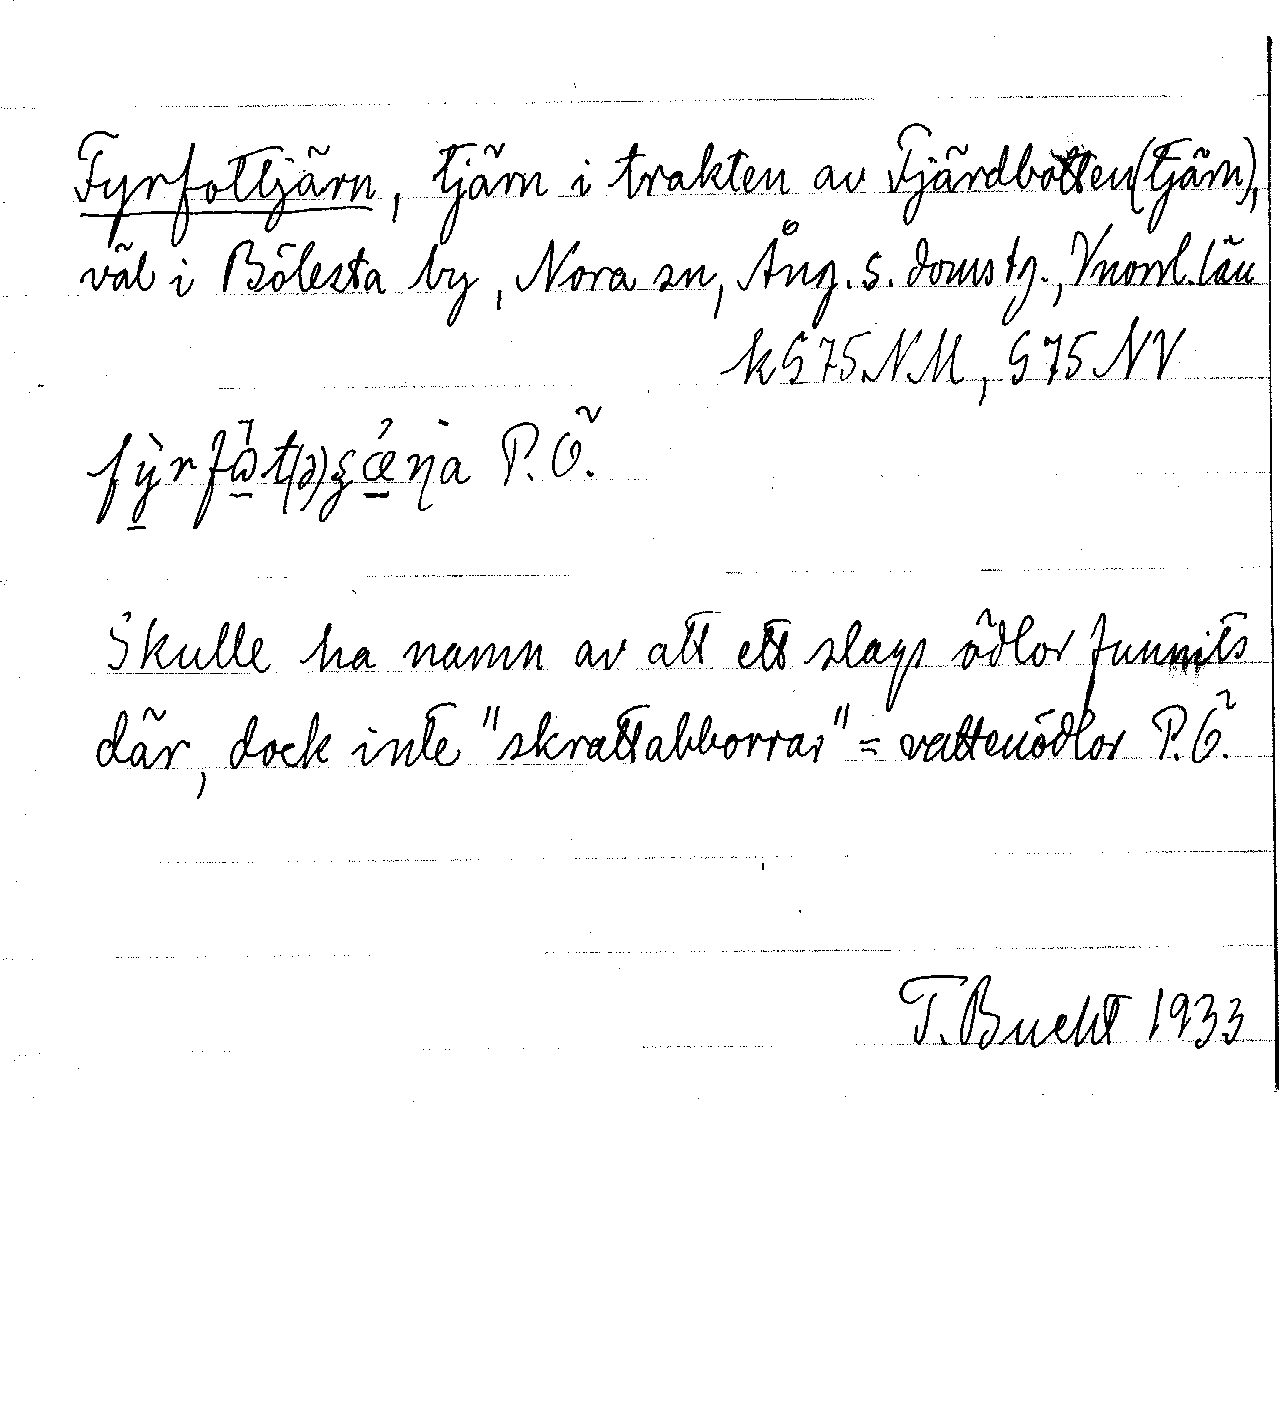 Fyrfottjärn, tjärn i trakten av Fjärdbotten(tjärn),
väl i Bölesta by, Nora sn, Ång. s. domstg., Vnorrl. län
k§75NM, §75NV
Skulle ha namn av att ett slags ödlor funnits
där, dock inte "skrattabborrar" = vattenödlor P.Ö.
T. Bucht 1933